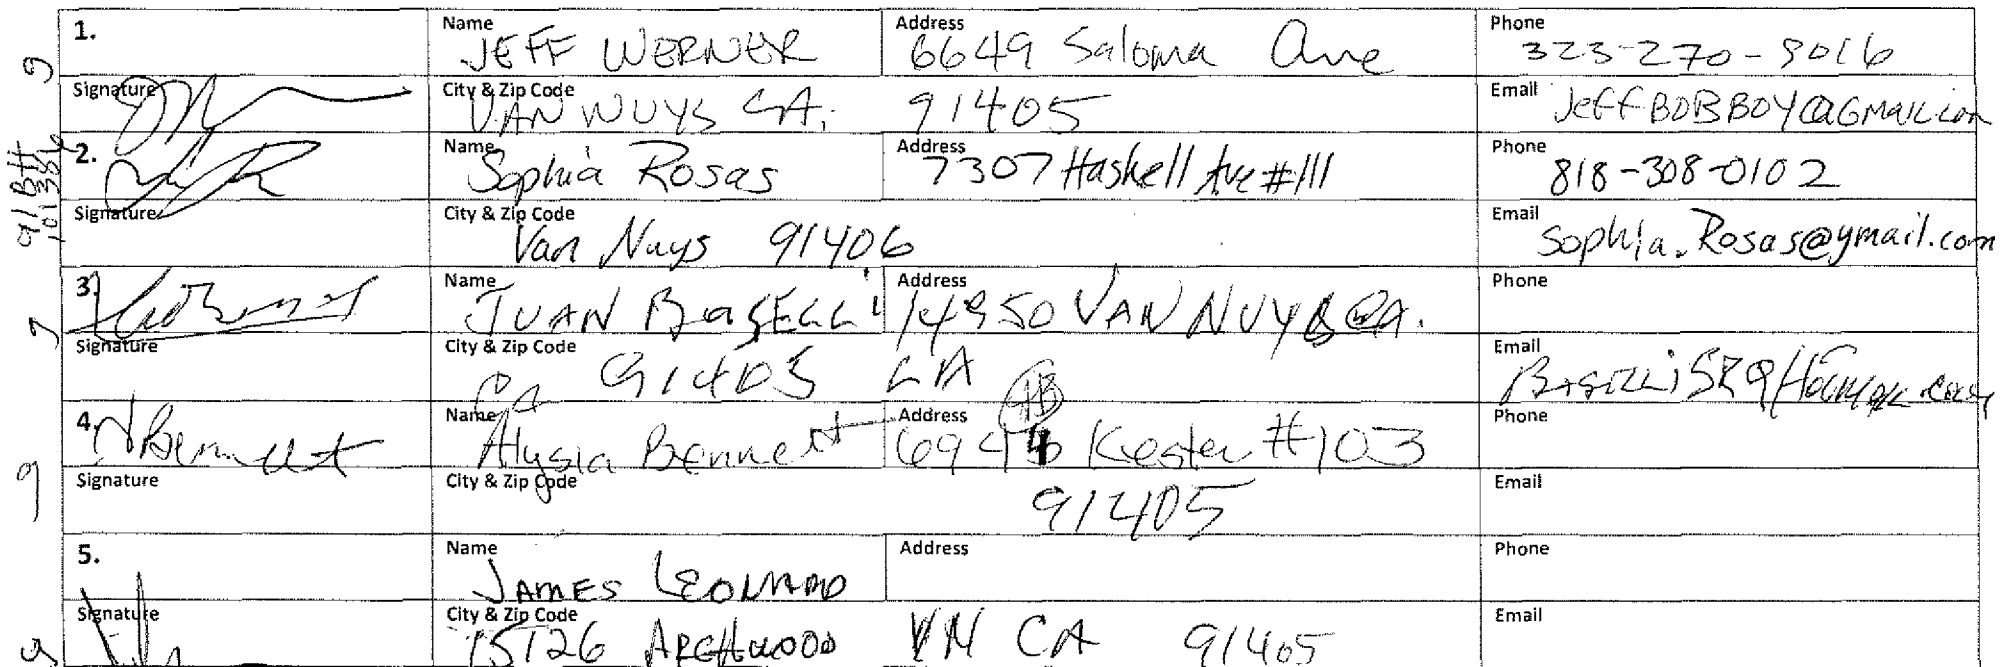 1. Name JEFF WERNER Address 6649 Saloma Ave Phone 323-270-9016
Signature City & Zip Code VAN NUYS CA. 91405 Email JeffBOBBOY@GMAIL.com
2. Name Sophia Rosas Address 7307 Haskell Ave #111 Phone 818-308-0102
Signature City & Zip Code Van Nuys 91406 Email Sophia.Rosas@ymail.com
3. Name JUAN Address 14950 VAN NUYS CA. Phone
Signature City & Zip Code CA 91405 LA Email
4. ABennett Name Alysia Bennett Address 6944 Kester #103 Phone
Signature City & Zip Code 91405 Email
5. Name JAMES LEONARD Address Phone
Signature City & Zip Code 15726 ARCHWOOD VN CA 91405 Email